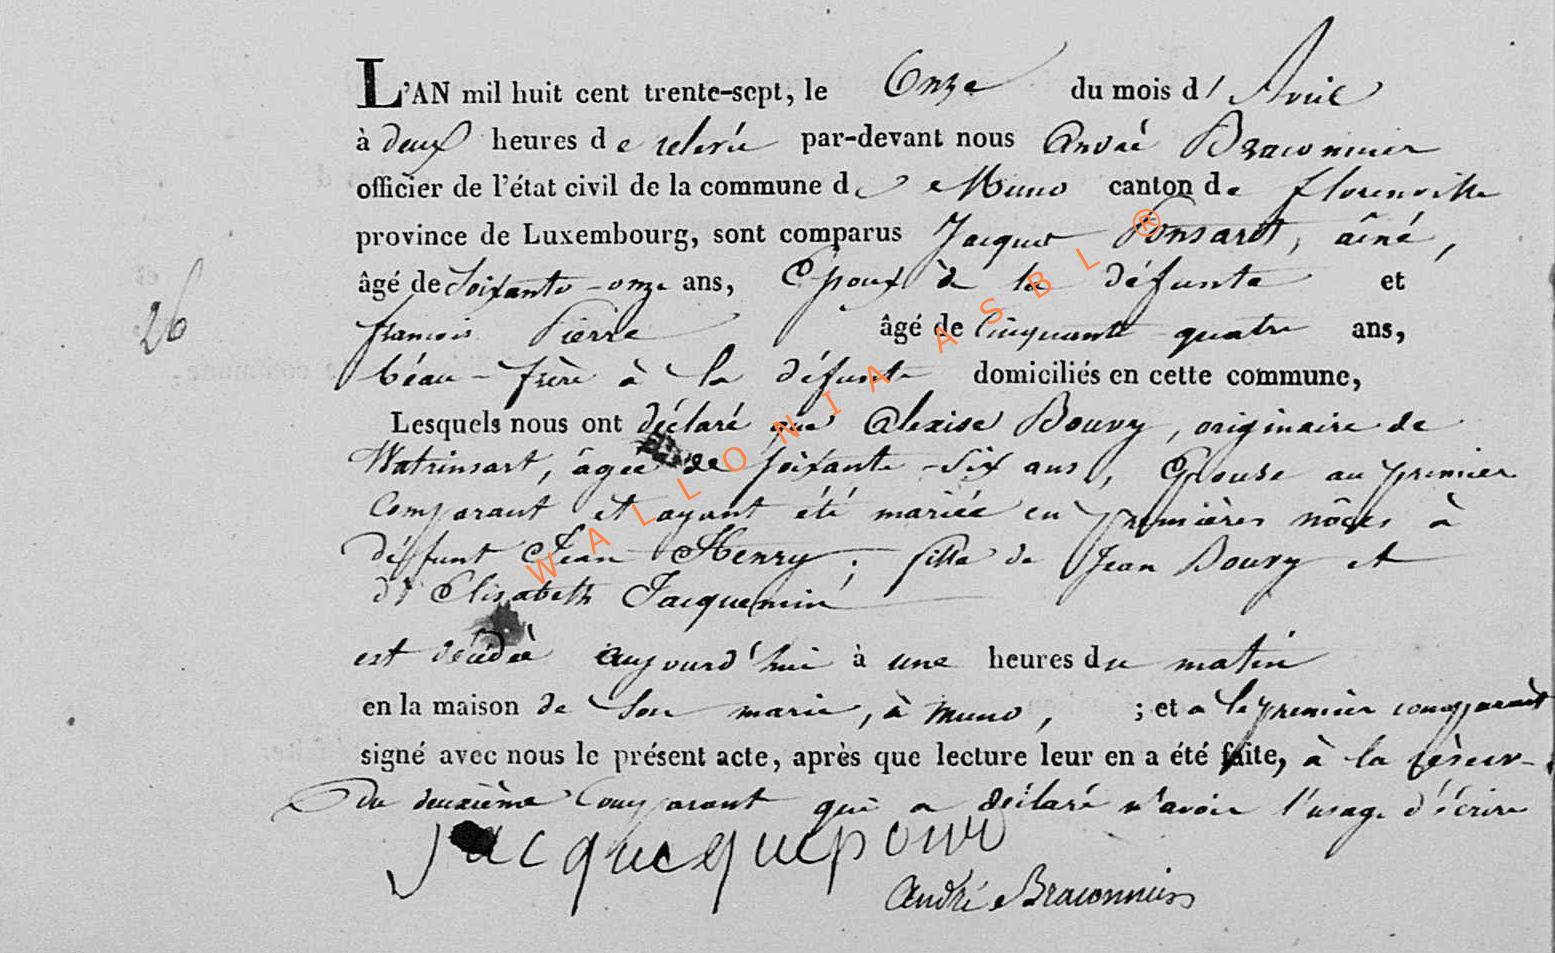 L'AN mil huit cent trente-sept, le Onze du mois d' Avril
à deux heures de relevée par-devant nous André Braconnier
officier de l'état civil de la commune de Muno canton de florenville
province de Luxembourg, sont comparus Jacques Ponsard, aîné,
âgé de Soixante-onze ans, Epoux de la défunte et
françois Pierre âgé de Cinquante quatre ans,
26
béau-frère à la défunte domiciliés en cette commune,
Lesquels nous ont déclaré que Alexise Bouvy, originaire de
Watrinsart, âgée de soixante-six ans, Epouse au premier
Comparant et ayant été mariée en premières nôces à
défunt Jean Henry; fille de Jean Bouvy et
d' Elisabeth Jacquemin
est décédée aujourd'hui à une heures du matin
en la maison de Son marie, à Muno, ; et a le premier comparant
signé avec nous le présent acte, après que lecture leur en a été faite, à la réserv-
Du deuxième Comparant qui a déclaré n'avoir l'usage d'écrire
Jacque
André Braconnier
WALLONIA ASBL ®